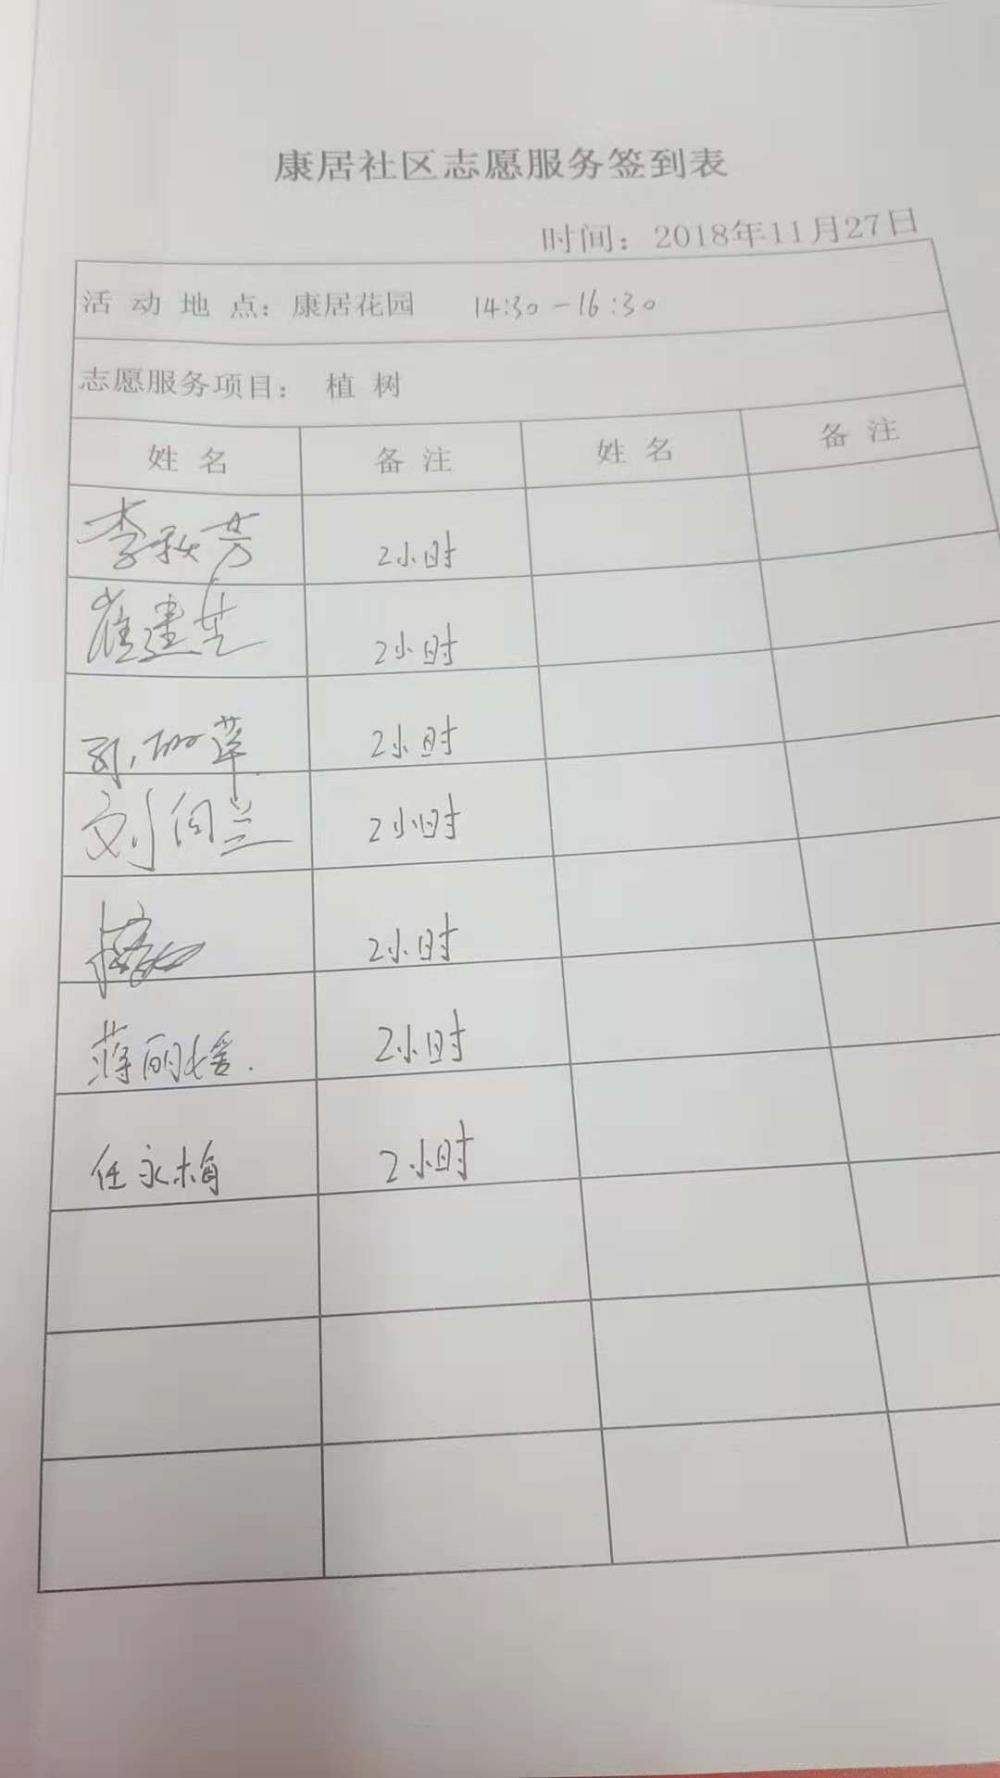 康居社区志愿服务签到表
时间：2018年11月27日
活动地点：康居花园 14:30-16:30
志愿服务项目：植树
姓名 备注 姓名 备注
李秋芳 2小时
崔建芝 2小时
2小时
刘向兰 2小时
2小时
蒋丽媛. 2小时
任永梅 2小时